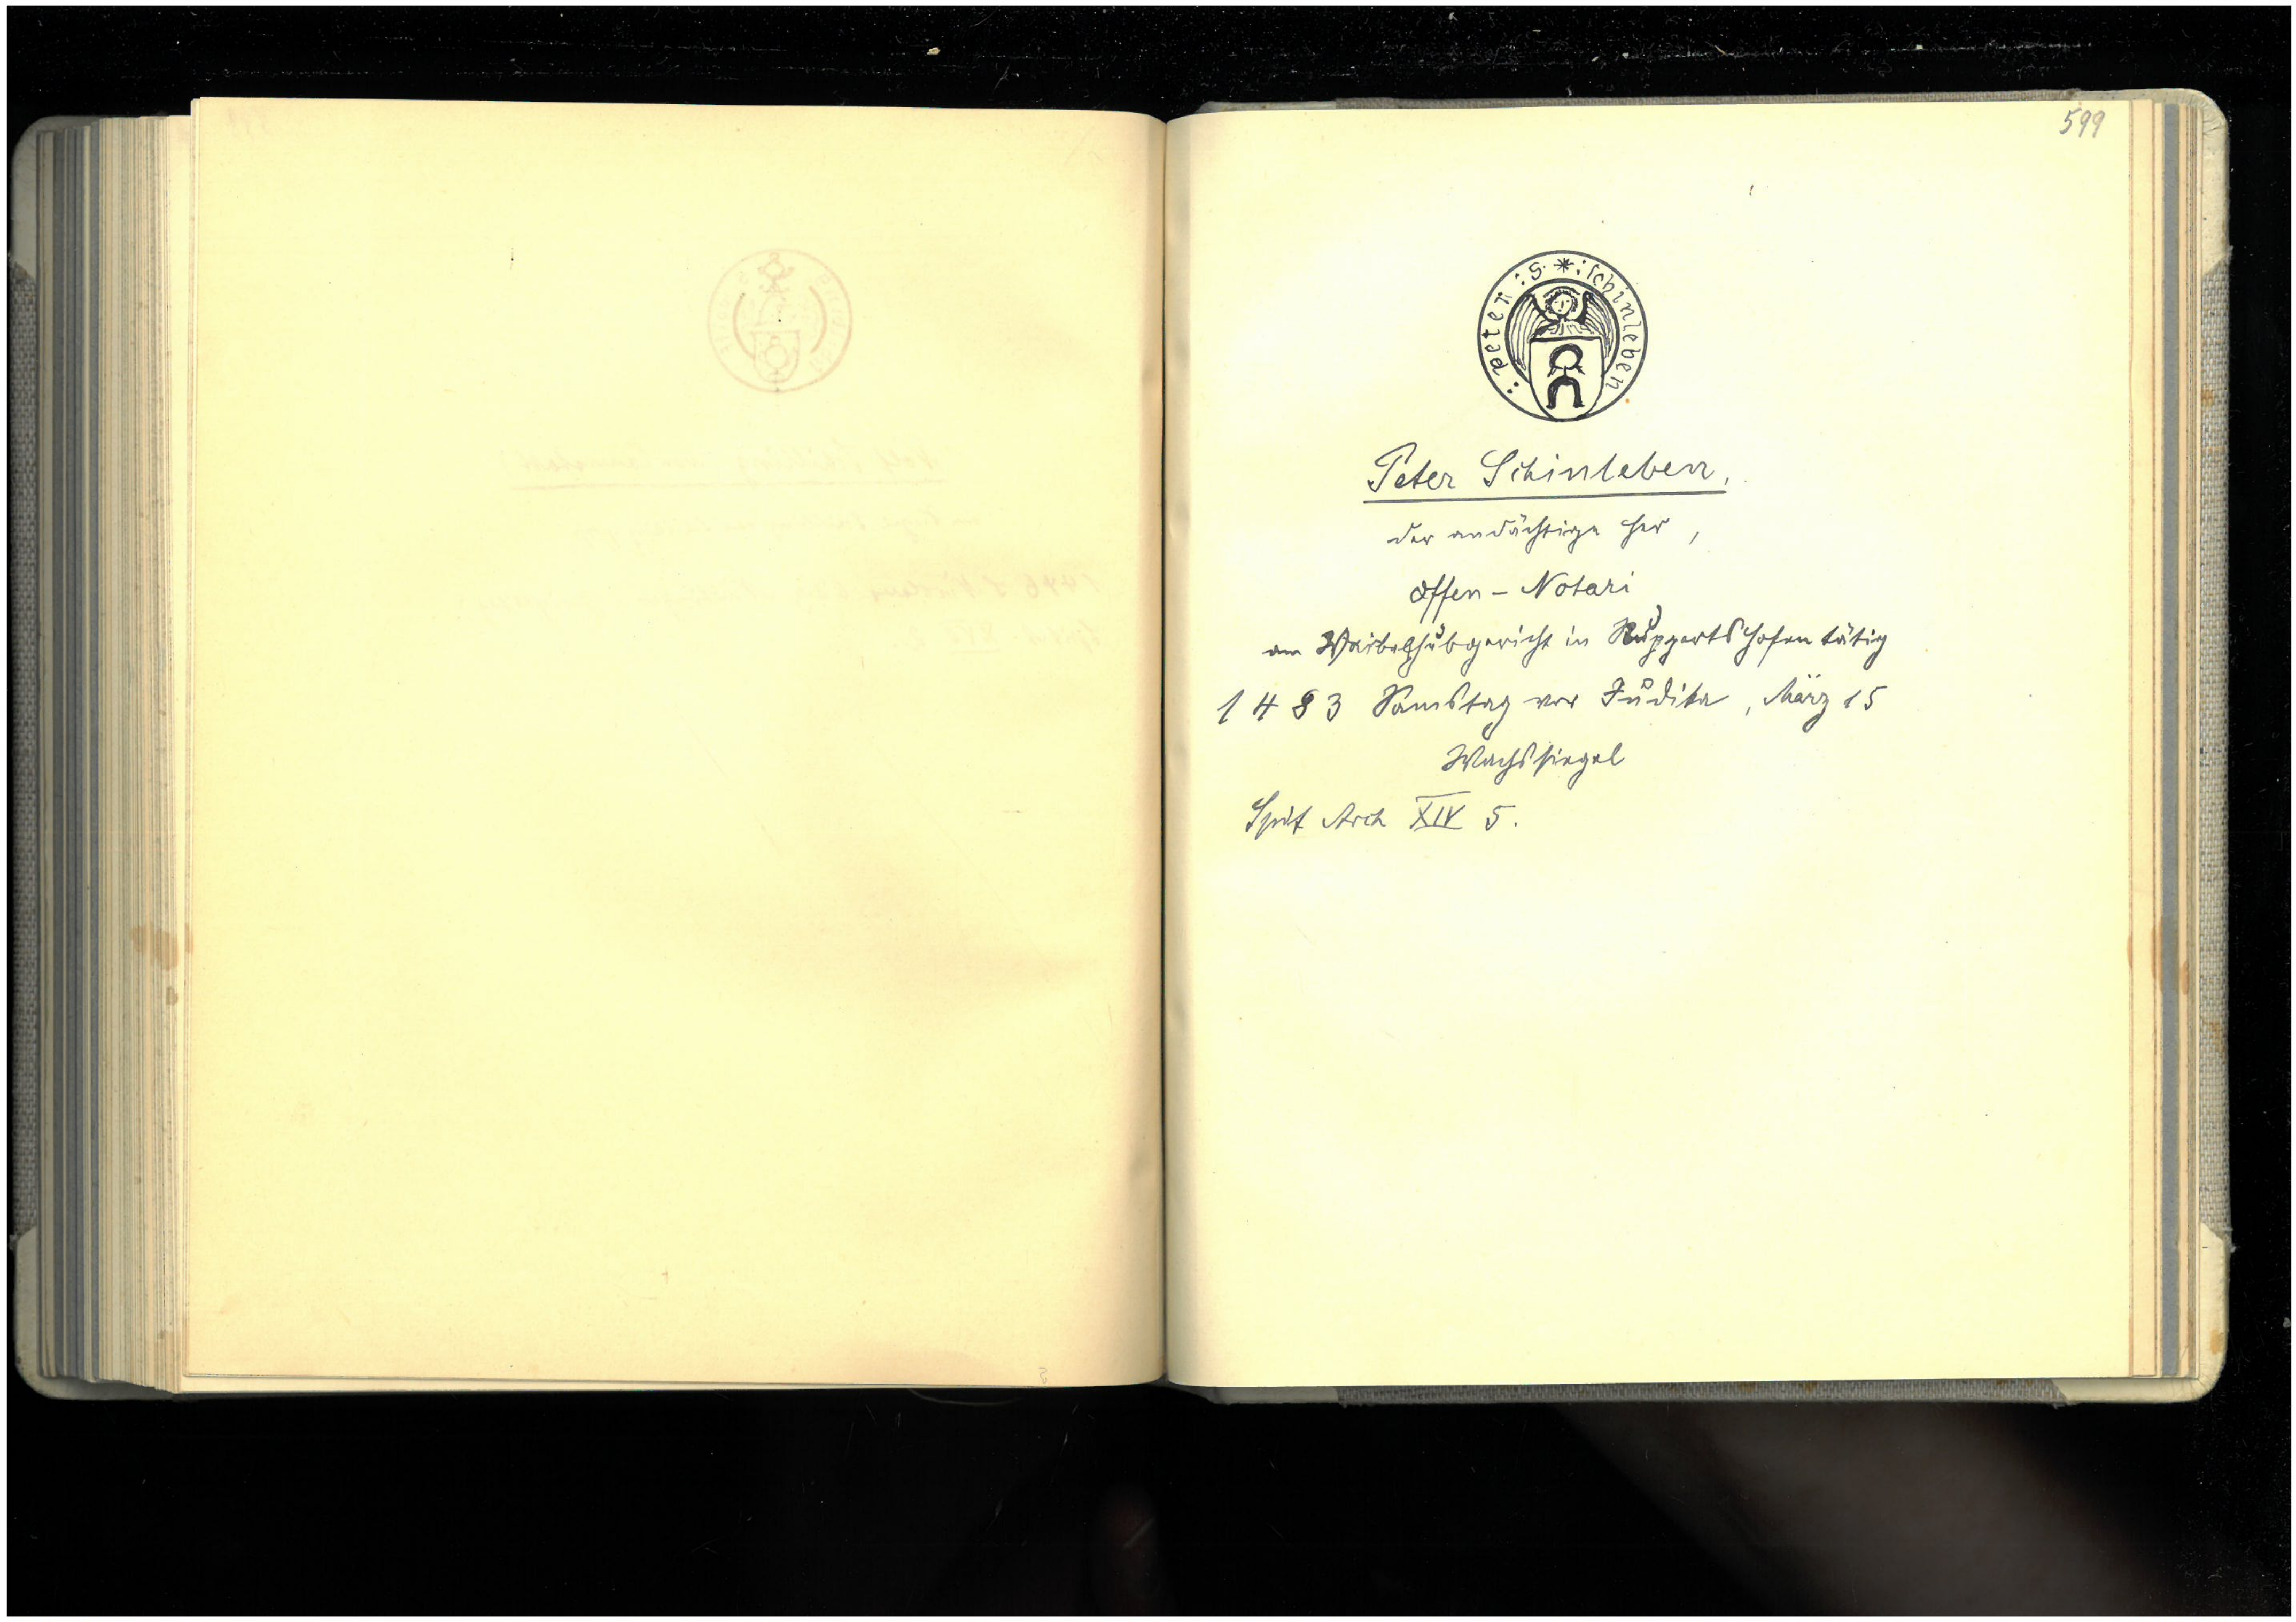 599
: peter : s · * : schinleben
Peter Schinleben,
der andächtige her,
offen – Notari
am Waibelhubgericht in Ruppertshofen tätig
1483 Samstag vor Judika, März 15
Wachssiegel
Spit Arch XIV 5.